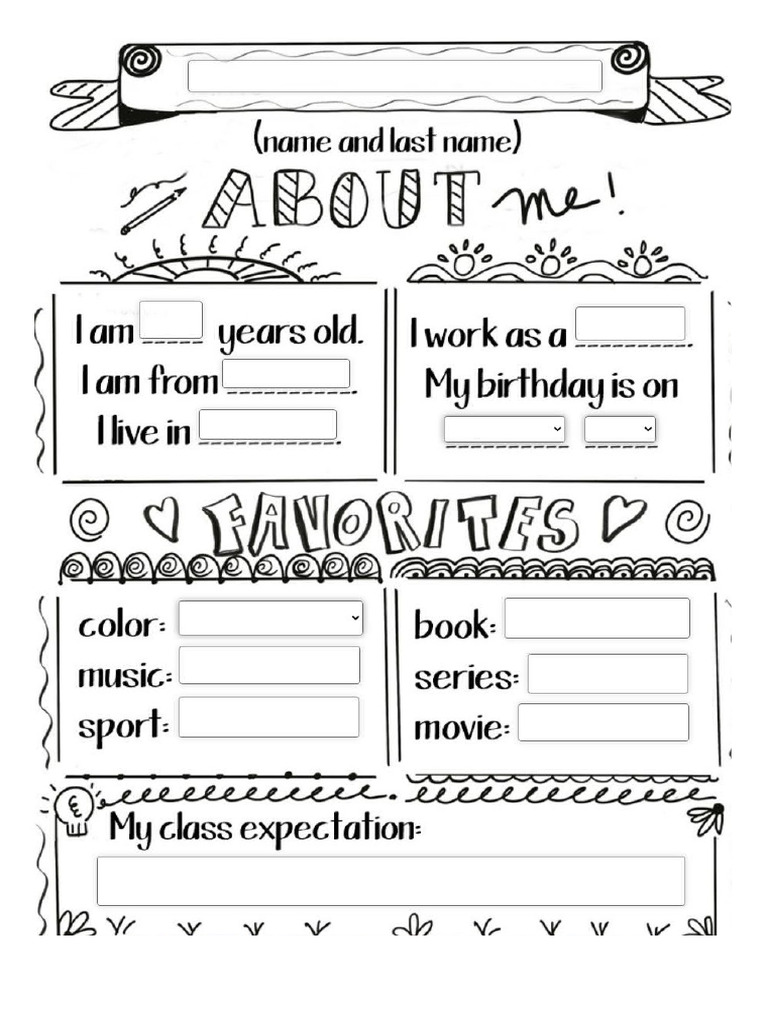 (name and last name)
ABOUT me!
I am years old.
I am from .
I live in .
I work as a .
My birthday is on
FAVORITES
color:
music:
sport:
book:
series:
movie:
My class expectation: